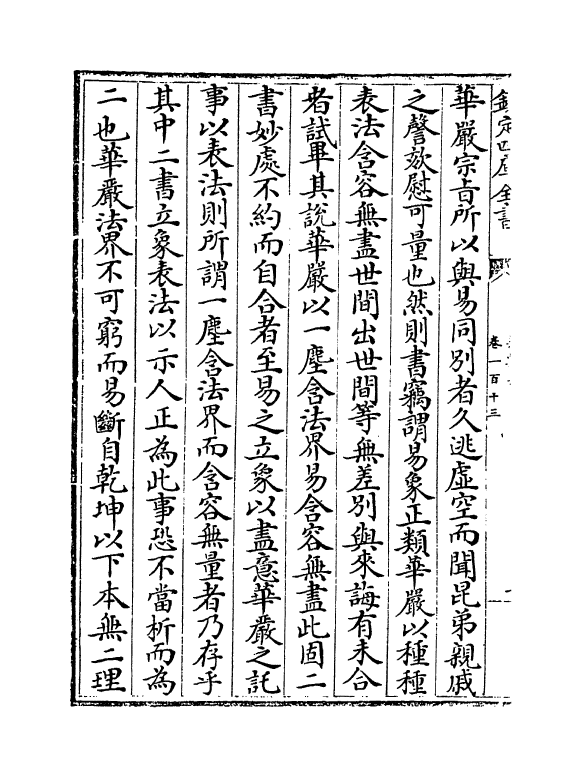 欽定四庫全書
卷一百十三
華嚴宗旨所以與易同別者久逃虛空而聞昆弟親戚
之謦欬慰可量也然則書竊謂易象正類華嚴以種種
表法含容無盡世間出世間等無差別與來誨有未合
者試畢其說華嚴以一塵含法界易含容無盡此固二
書妙處不約而自合者至易之立象以盡意華嚴之託
事以表法則所謂一塵含法界而含容無量者乃存乎
其中二書立象表法以示人正為此事恐不當析而為
二也華嚴法界不可窮而易斷自乾坤以下本無二理